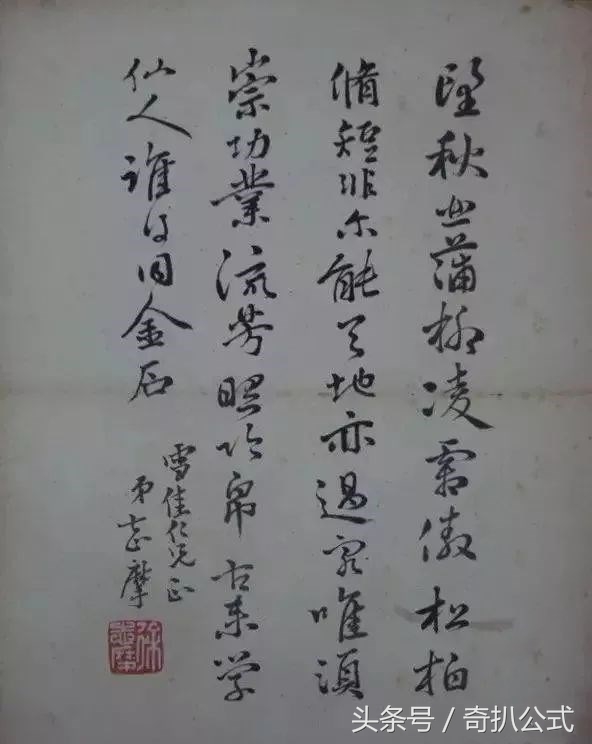 望秋蒲柳凌霜傲松柏
脩短非尔能天地亦過客唯須
崇功業流芳照竹帛古來學
仙人誰得同金石
雪佳仁兄正
弟志摩
徐志摩
头条号 / 奇扒公式